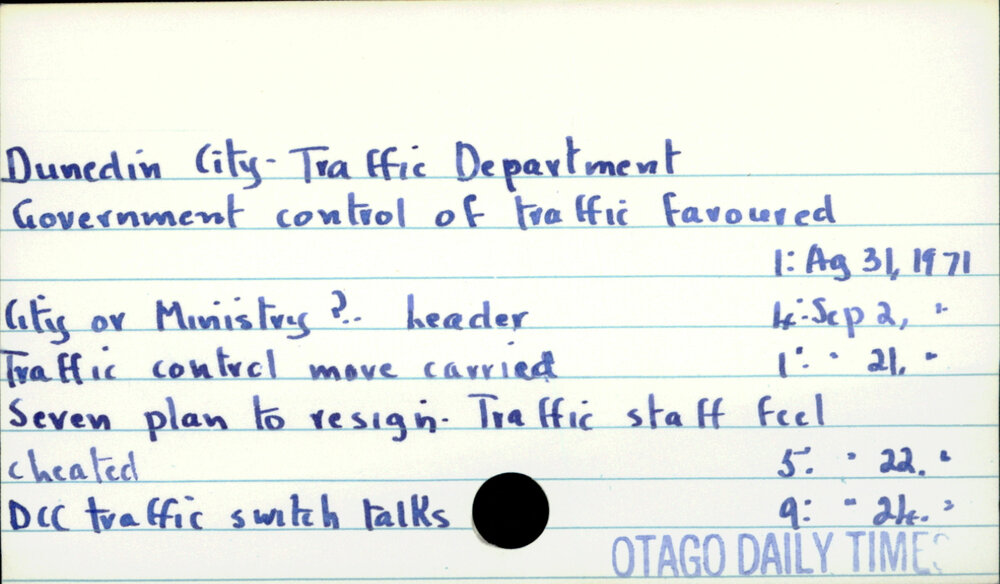 Dunedin City - Traffic Department
Government control of traffic favoured
1: Ag 31, 1971
City or Ministry ?.. header 4: Sep 2, "
Traffic control move carried 1: " 21. "
Seven plan to resign - Traffic staff feel
cheated 5. " 22. "
DCC traffic switch talks 9: " 24. "
OTAGO DAILY TIMES